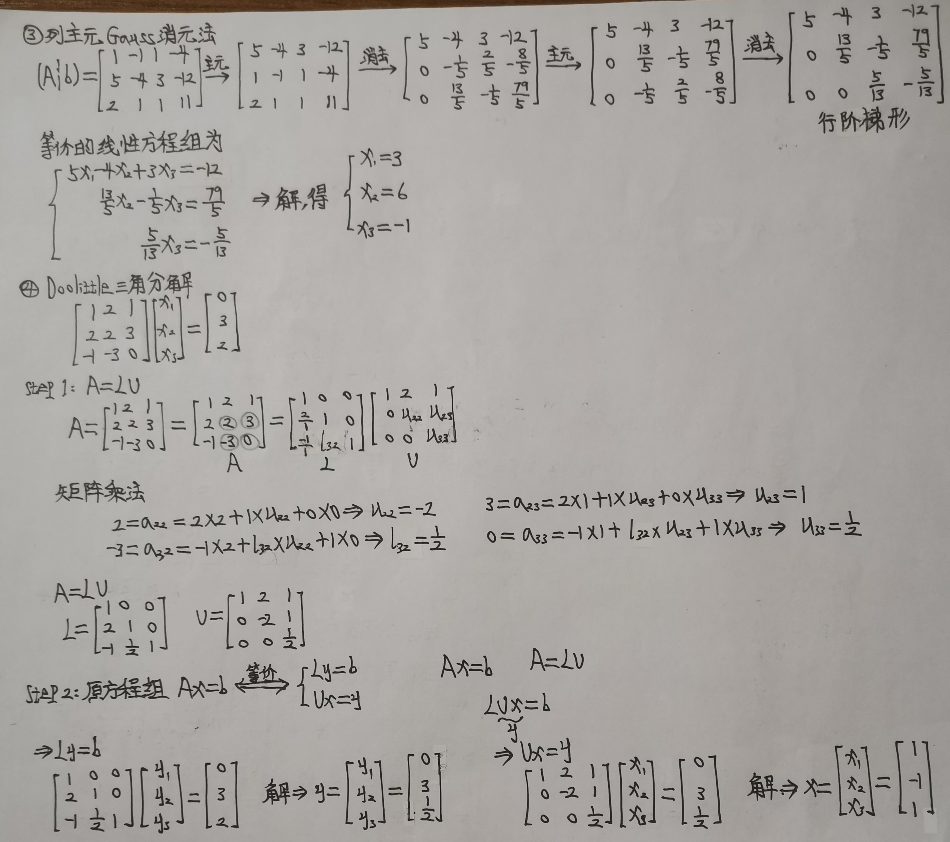 ③列主元Gauss消元法
(A¦b)=[1 -1 1 -4; 5 -4 3 -12; 2 1 1 11] 主元→ [5 -4 3 -12; 1 -1 1 -4; 2 1 1 11] 消去→ [5 -4 3 -12; 0 -1/5 2/5 -8/5; 0 13/5 -1/5 79/5] 主元→ [5 -4 3 -12; 0 13/5 -1/5 79/5; 0 -1/5 2/5 -8/5] 消去→ [5 -4 3 -12; 0 13/5 -1/5 79/5; 0 0 5/13 -5/13]
行阶梯形
等价的线性方程组为
{5x₁-4x₂+3x₃=-12
13/5x₂-1/5x₃=79/5
5/13x₃=-5/13
⇒解,得
{x₁=3
x₂=6
x₃=-1
④ Doolittle三角分解
[1 2 1; 2 2 3; -1 -3 0][x₁; x₂; x₃]=[0; 3; 2]
Step 1: A=LU
A=[1 2 1; 2 2 3; -1 -3 0]=[1 2 1; 2 2 3; -1 -3 0]=[1 0 0; 2/1 1 0; -1/1 l₃₂ 1][1 2 1; 0 u₂₂ u₂₃; 0 0 u₃₃]
A L U
矩阵乘法
2=a₂₂=2×2+1×u₂₂+0×0⇒u₂₂=-2 3=a₂₃=2×1+1×u₂₃+0×u₃₃⇒u₂₃=1
-3=a₃₂=-1×2+l₃₂×u₂₂+1×0⇒l₃₂=1/2 0=a₃₃=-1×1+l₃₂×u₂₃+1×u₃₃⇒u₃₃=1/2
A=LU
L=[1 0 0; 2 1 0; -1 1/2 1] U=[1 2 1; 0 -2 1; 0 0 1/2]
Step 2: 原方程组 Ax=b 等价⟺ {Ly=b Ux=y
Ax=b A=LU
LUx=b
y
⇒Ly=b
[1 0 0; 2 1 0; -1 1/2 1][y₁; y₂; y₃]=[0; 3; 2] 解⇒y=[y₁; y₂; y₃]=[0; 3; 1/2]
⇒Ux=y
[1 2 1; 0 -2 1; 0 0 1/2][x₁; x₂; x₃]=[0; 3; 1/2] 解⇒x=[x₁; x₂; x₃]=[1; -1; 1]